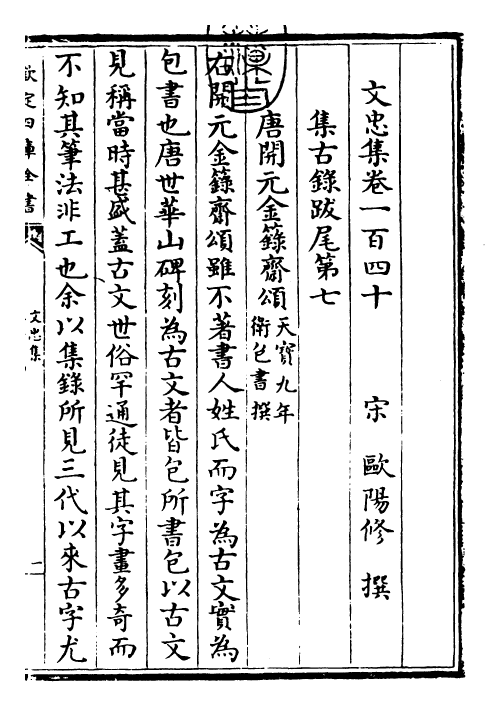 文忠集卷一百四十
宋 歐陽修 撰
集古錄跋尾第七
唐開元金籙齋頌 天寶九年
衛包書撰
右開元金籙齋頌雖不著書人姓氏而字為古文實為
包書也唐世華山碑刻為古文者皆包所書包以古文
見稱當時甚盛蓋古文世俗罕通徒見其字畫多奇而
不知其筆法非工也余以集錄所見三代以來古字尤
欽定四庫全書
文忠集